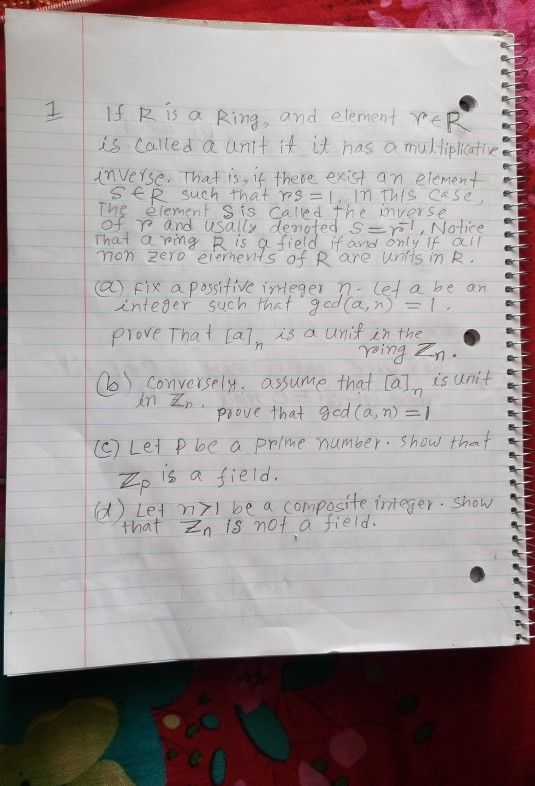 1 If R is a Ring, and element r ∈ R
is called a unit if it has a multiplicative
inverse. That is, if there exist an element
S ∈ R such that rs = 1. In this case,
The element S is called the inverse
of r and usally denoted S = r⁻¹. Notice
That a ring R is a field if and only if all
non zero elements of R are units in R.
(a) Fix a possitive integer n. Let a be an
integer such that gcd(a,n) = 1.
prove That [a]ₙ is a unit in the
ring Zₙ.
(b) Conversely. assume that [a]ₙ is unit
in Zₙ. prove that gcd(a,n) = 1
(c) Let P be a prime number. Show that
Zₚ is a field.
(d) Let n>1 be a composite integer. Show
that Zₙ is not a field.